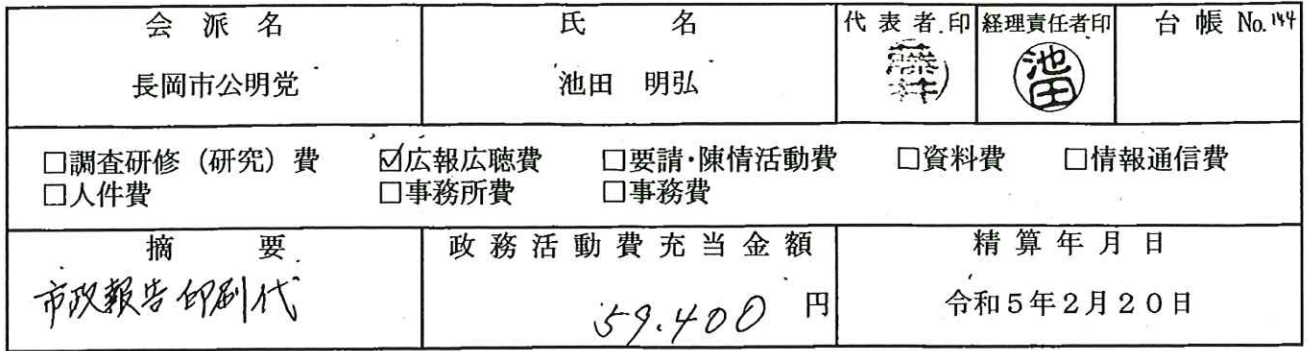 会派名 氏名 代表者印 経理責任者印 台帳 No.144
長岡市公明党 池田 明弘 藤井 池田
□調査研修(研究)費 ☑広報広聴費 □要請・陳情活動費 □資料費 □情報通信費
□人件費 □事務所費 □事務費
摘要 政務活動費充当金額 精算年月日
市政報告印刷代 59.400 円 令和5年2月20日